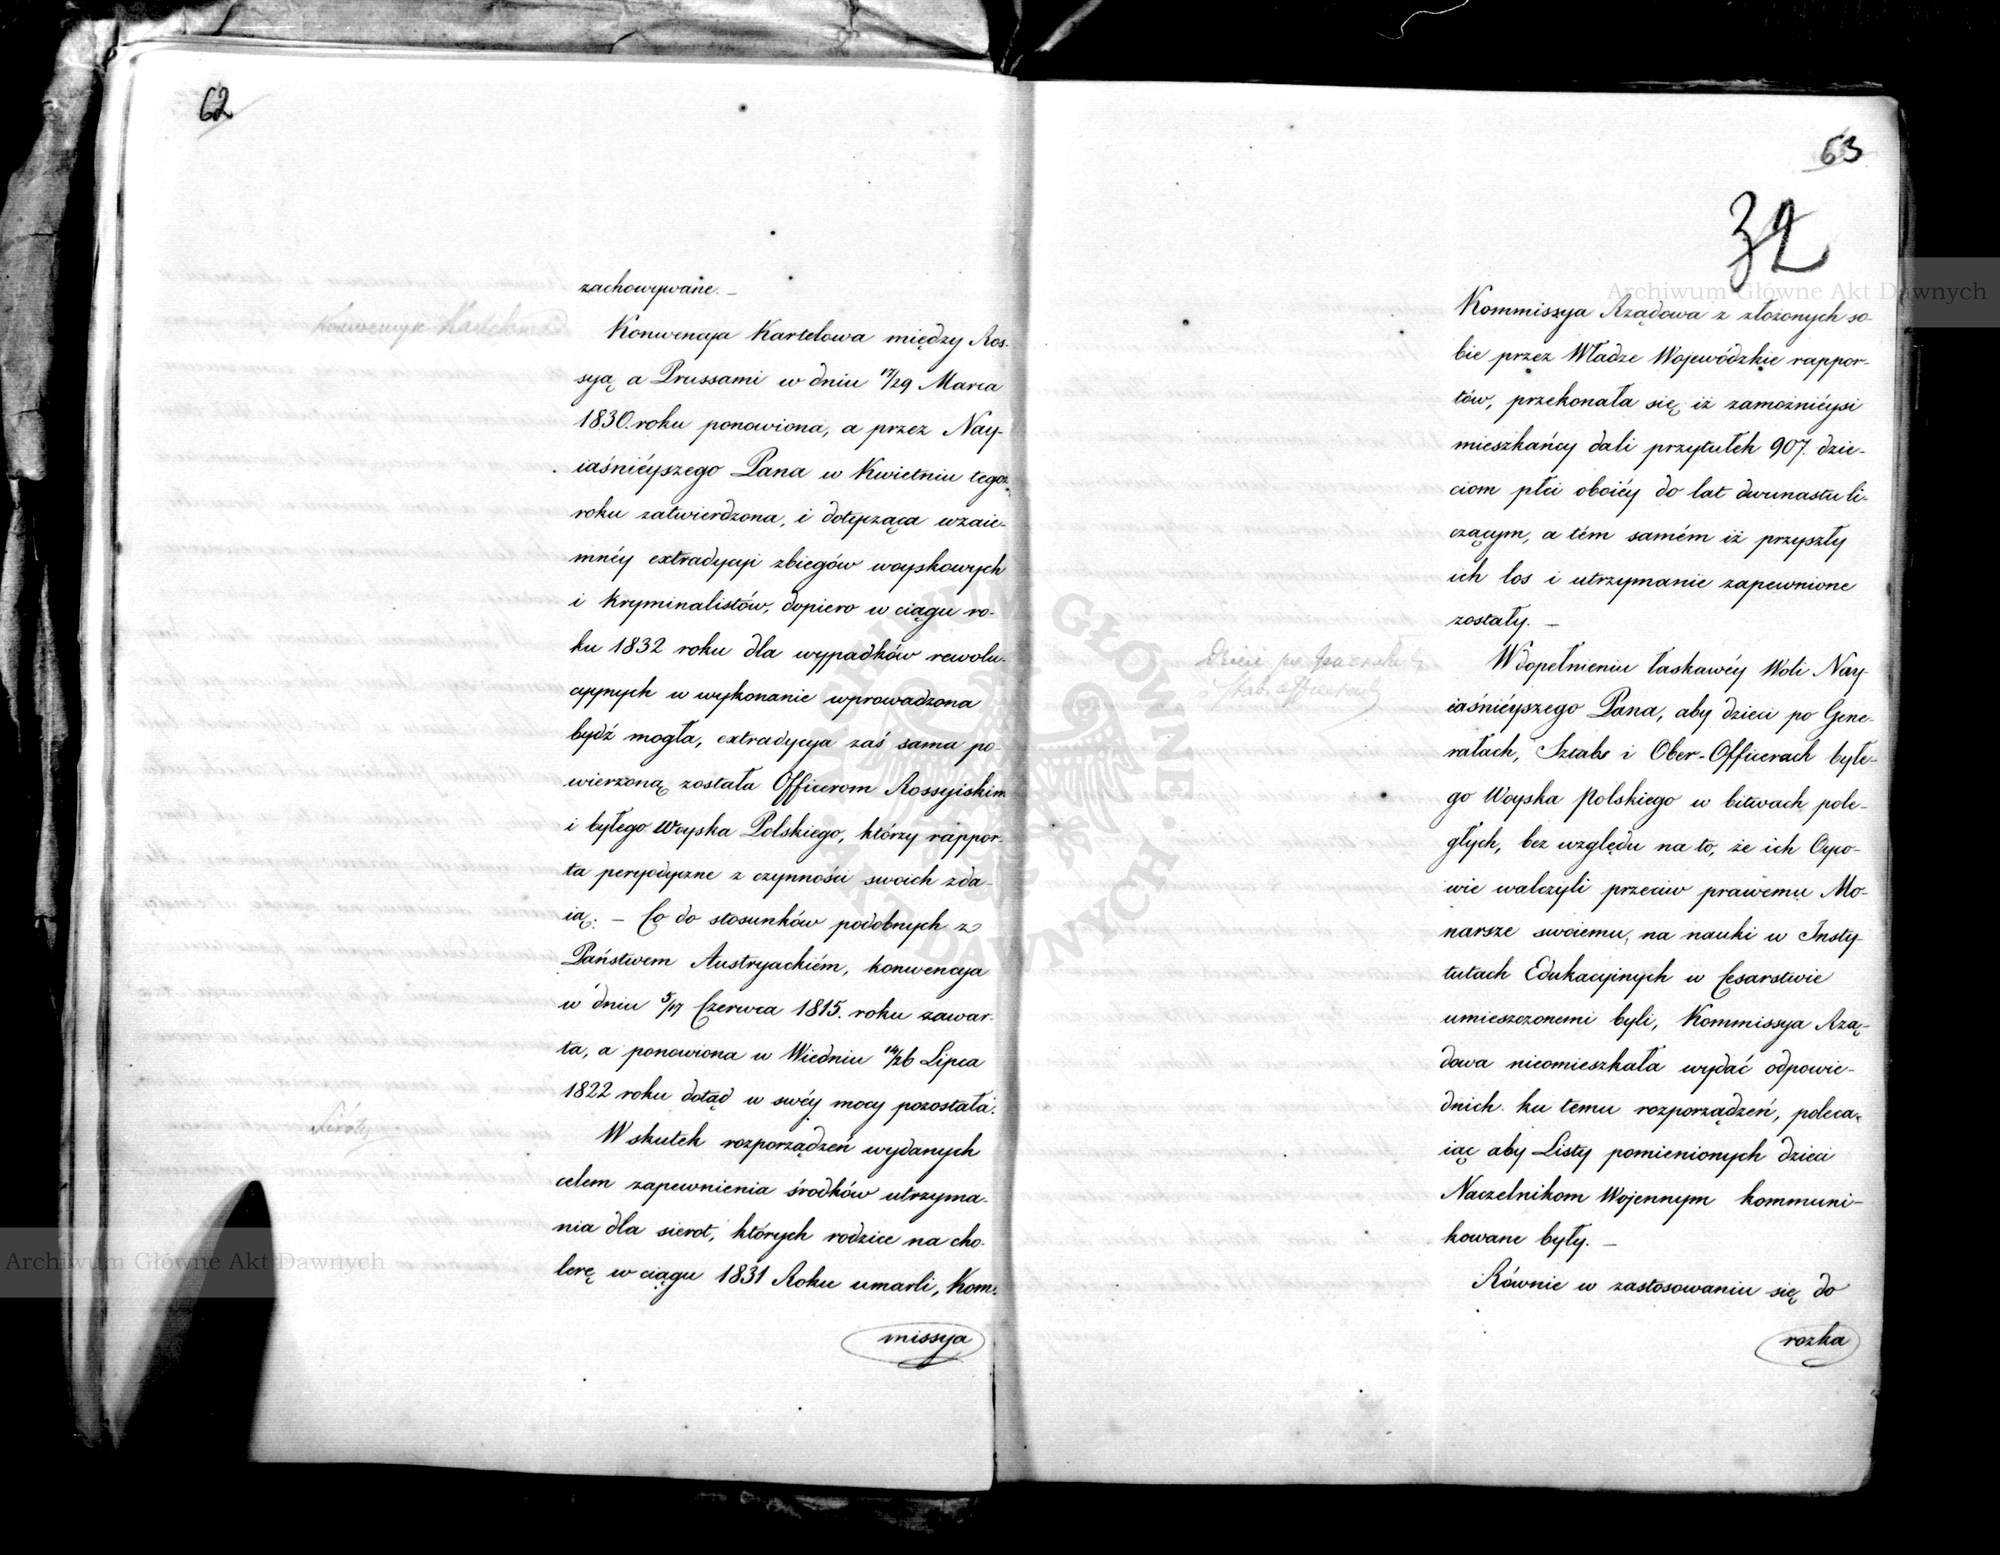 62
zachowywane. —
Konwencya Kartelowa
Konwencya Kartelowa między Ros-
syą a Prussami w dniu 17/29 Marca
1830. roku ponowiona, a przez Nay-
iaśnieyszego Pana w Kwietniu tegoż
roku zatwierdzona, i dotycząca wzaie-
mnéy extradycyi zbiegów woyskowych
i kryminalistów, dopiero w ciągu ro-
ku 1832 roku dla wypadków rewolu-
cyynych w wykonanie wprowadzona
bydź mogła, extradycya zaś sama po-
wierzoną została Officerom Rossyiskim
i byłego Woyska Polskiego, którzy rappor-
ta peryodyczne z czynności swoich zda-
ią. — Co do stosunków podobnych z
Państwem Austryackiém, konwencya
w dniu 5/17 Czerwca 1815. roku zawar-
ta, a ponowiona w Wiedniu 14/26 Lipca
1822 roku dotąd w swéy mocy pozostała.
Siéroty
W skutek rozporządzeń wydanych
celem zapewnienia środków utrzyma-
nia dla sierot, których rodzice na cho-
lerę w ciągu 1831 Roku umarli, Kom-
missya
63
32
Kommissya Rządowa z złożonych so-
bie przez Władze Wojewódzkie rappor-
tów, przekonała się iż zamożnieysi
mieszkańcy dali przytułek 907. dzie-
ciom płci oboiéy do lat dwunastu li-
czącym, a tém samém iż przyszły
ich los i utrzymanie zapewnione
zostały. —
Dzieci po
W dopełnieniu łaskawéy Woli Nay-
iaśnieyszego Pana, aby dzieci po Gene-
rałach, Sztabs i Ober-Officerach byłe-
go Woyska Polskiego w bitwach pole-
głych, bez względu na to, że ich Oyco-
wie walczyli przeciw prawemu Mo-
narsze swoiemu, na nauki w Insty-
tutach Edukacyinych w Cesarstwie
umieszczonemi byli, Kommissya Rzą-
dowa nieomieszkała wydać odpowie-
dnich ku temu rozporządzeń, poleca-
iąc aby Listy pomienionych dzieci
Naczelnikom Wojennym kommuni-
kowane były. —
Równie w zastosowaniu się do
rozka
Archiwum Główne Akt Dawnych
Archiwum Główne Akt Dawnych
ARCHIWUM GŁÓWNE · AKT DAWNYCH ·